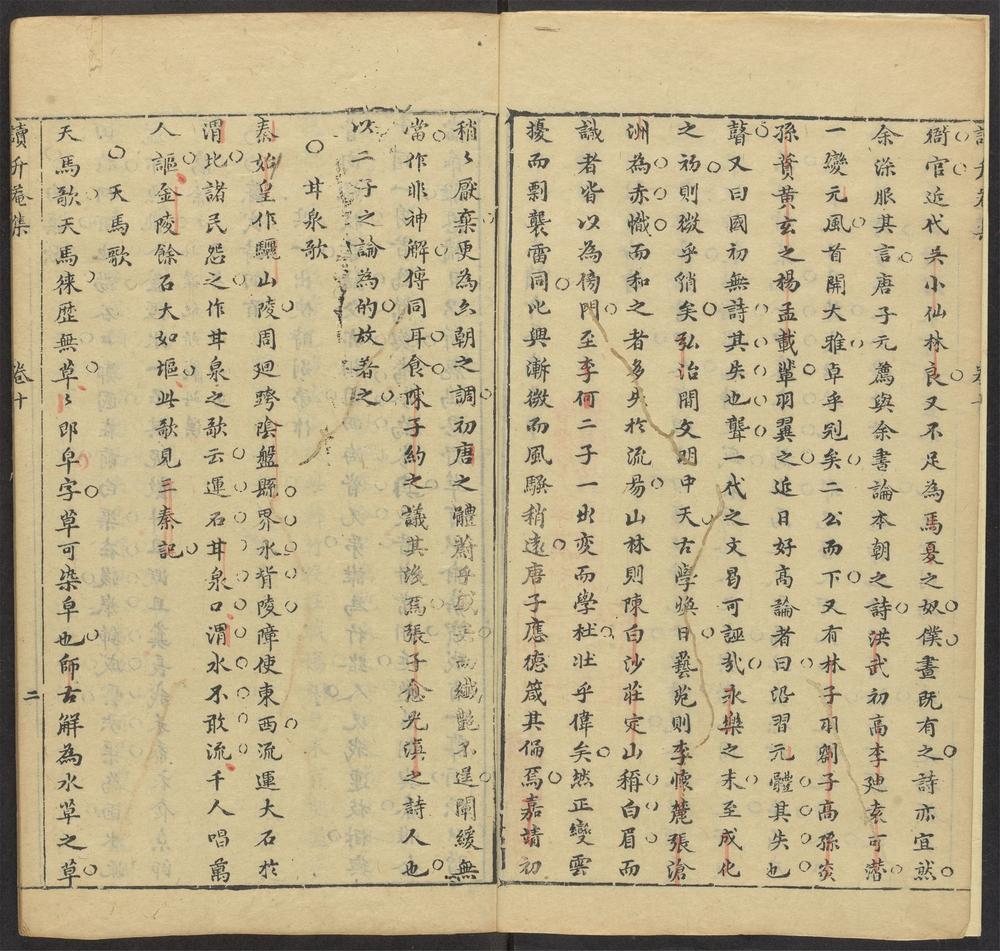 衙官近代吳小仙林良又不足為馬夏之奴僕畫既有之詩亦宜然
余深服其言唐子元薦與余書論本朝之詩洪武初高李廸袁可潛
一變元風首開大雅卓乎冠矣二公而下又有林子羽劉子高孫炎
孫蕡黃玄之楊孟載輩羽翼之近日好高論者曰沿習元體其失也
瞽又曰國初無詩其失也聾一代之文曷可誣哉永樂之末至成化
之初則微乎稍矣弘治間文明中天古學煥日藝苑則李懷麓張滄
洲為赤幟而和之者多失於流易山林則陳白沙莊定山稱白眉而
識者皆以為傍門至李何二子一出变而學杜壯乎偉矣然正變雲
擾而剽襲雷同比興漸微而風騷稍遠唐子應德箴其偏焉嘉靖初
稍〻厭棄更為六朝之調初唐之體蔚乎盛矣而纖艶不逞闡緩無
當作非神解傳同耳食陳子約之議其後焉張子愈光滇之詩人也
以二子之論為的故著之
○甘泉歌
秦始皇作驪山陵周廻跨陰盤縣界水背陵障使東西流運大石於
渭北諸民怨之作甘泉之歌云運石甘泉口渭水不敢流千人唱萬
人謳金陵餘石大如塸此歌見三秦記
○天馬歌
天馬歌天馬徠歴無草〻即皁字草可染皁也師古解為水草之草
讀升菴集
卷十
二